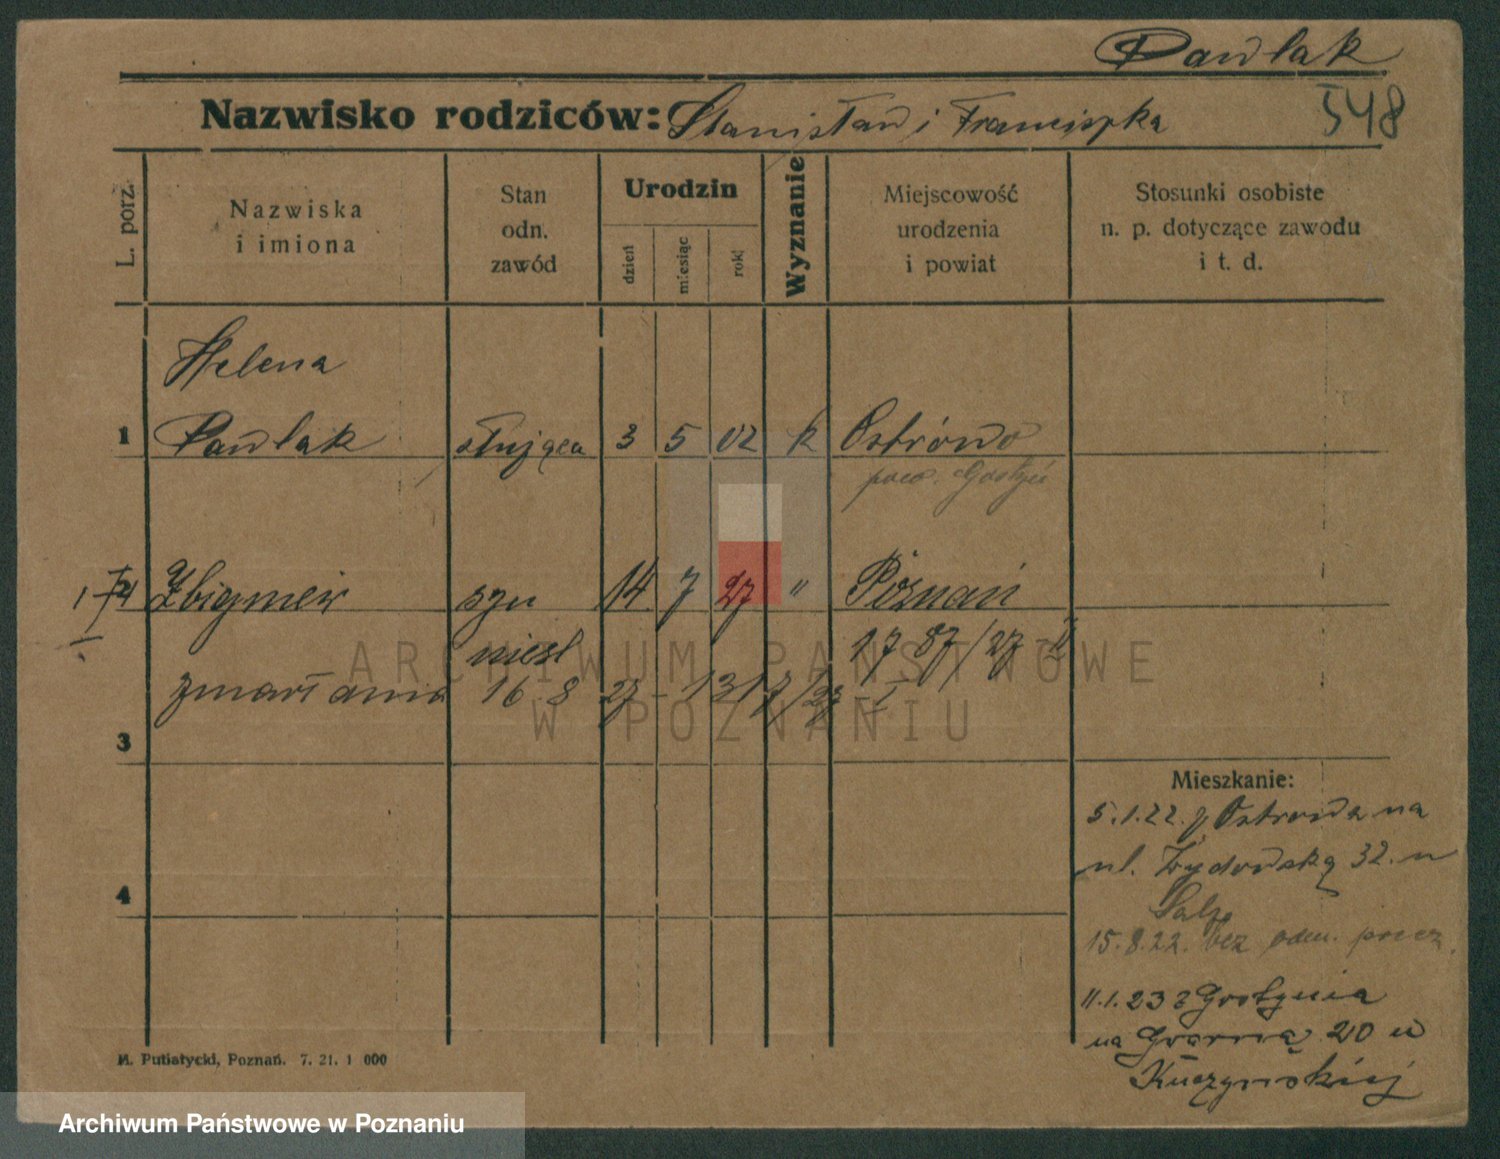 Pawlak
Nazwisko rodziców: Stanisław i Franciszka
548
L. porz.
Nazwiska
i imiona
Stan
odn.
zawód
Urodzin
dzień
miesiąc
rok
Wyznanie
Miejscowość
urodzenia
i powiat
Stosunki osobiste
n. p. dotyczące zawodu
i t. d.
Helena
1 Pawlak służąca 3 5 02 k Ostrowo
pow. Gostyń
2 Zbigniew syn 14 7 27 " Poznań
nieśl 1787/27 II
zmarł dnia 16 8 27 - 1317/27 I
3
Mieszkanie:
5.1.22. z Ostrowa na
ul. Żydowską 32. u
15.8.22. bez odm. precz.
4
11.1.23 z Gostynia
na Gwarną 20 u
Kuczyńskiej
M. Putiatycki, Poznań. 7. 21. 1 000
ARCHIWUM PAŃSTWOWE
W POZNANIU
Archiwum Państwowe w Poznaniu